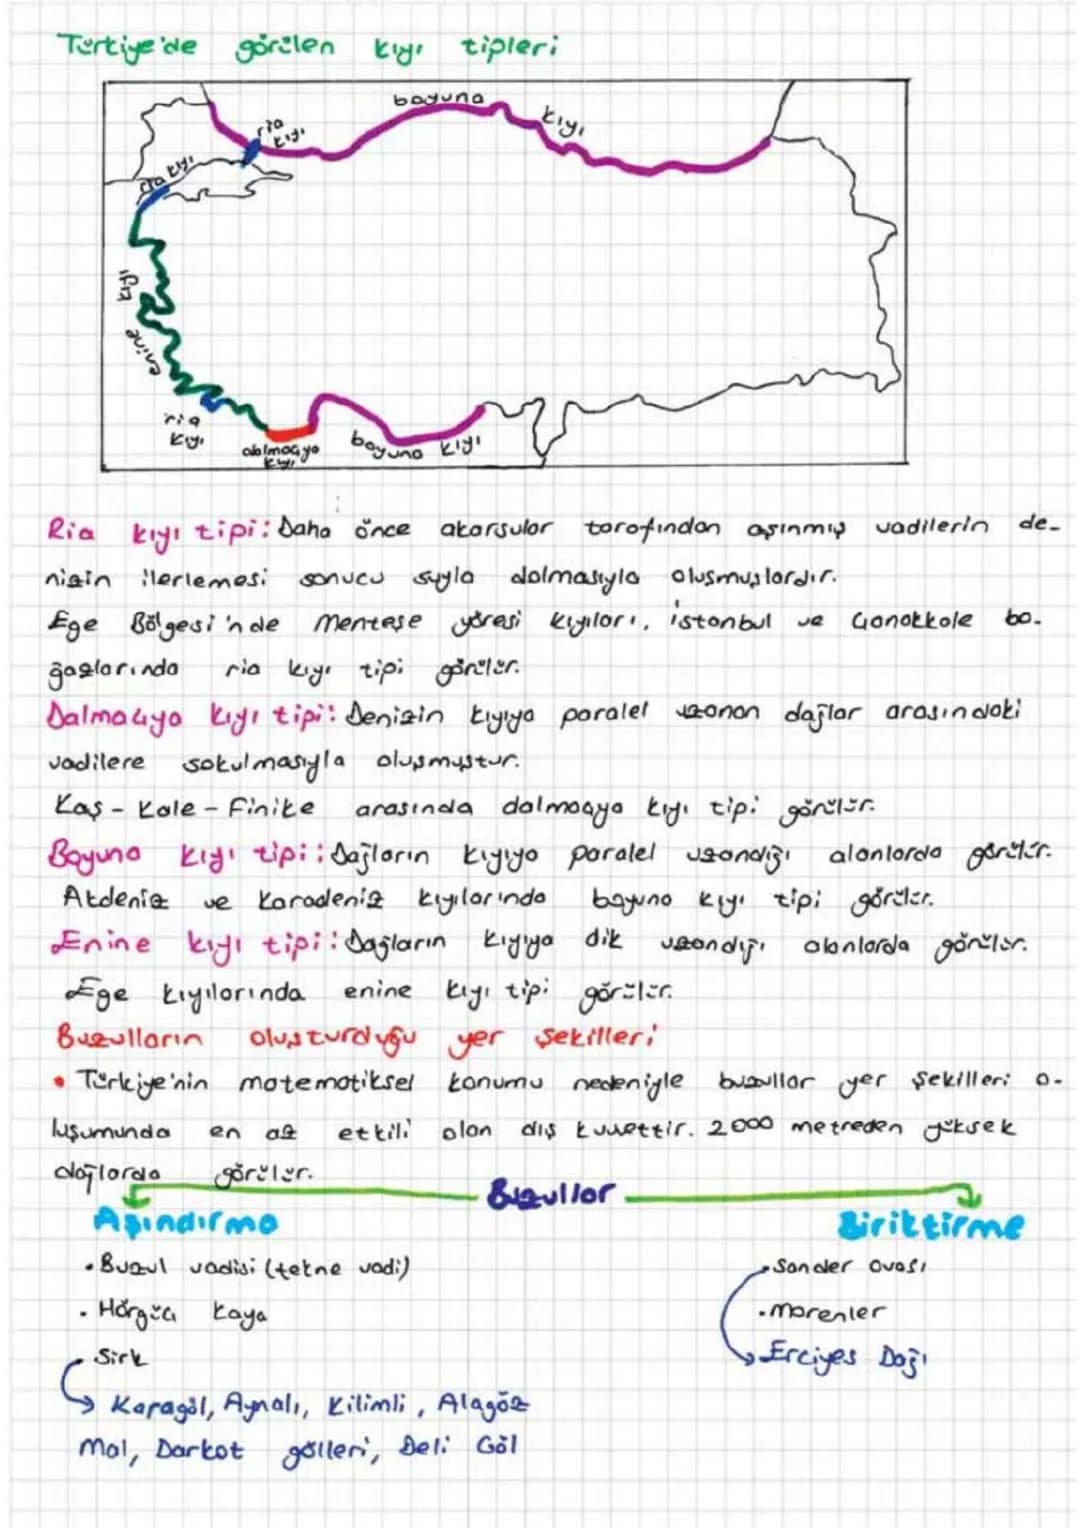 Türkiye'de görülen kıyı tipleri
boyuna kıyı
ria kıyı
ria kıyı
enine kıyı
ria kıyı
dalmaçya kıyı
boyuna kıyı
Ria kıyı tipi: Daha önce akarsular tarafından aşınmış vadilerin de-
nizin ilerlemesi sonucu suyla dolmasıyla oluşmuşlardır.
Ege Bölgesi'nde Menteşe yöresi kıyıları, İstanbul ve Çanakkale bo-
ğazlarında ria kıyı tipi görülür.
Dalmaçya kıyı tipi: Denizin kıyıya paralel uzanan dağlar arasındaki
vadilere sokulmasıyla oluşmuştur.
Kaş - Kale - Finike arasında dalmaçya kıyı tipi görülür.
Boyuna kıyı tipi: Dağların kıyıya paralel uzandığı alanlarda görülür.
Akdeniz ve Karadeniz kıyılarında boyuna kıyı tipi görülür.
Enine kıyı tipi: Dağların kıyıya dik uzandığı alanlarda görülür.
Ege kıyılarında enine kıyı tipi görülür.
Buzulların oluşturduğu yer şekilleri
• Türkiye'nin matematiksel konumu nedeniyle buzullar yer şekilleri o-
luşumunda en az etkili olan dış kuvvettir. 2000 metreden yüksek
dağlarda görülür.
Buzullar
Aşındırma
Biriktirme
• Buzul vadisi (tekne vadi)
• Sander ovası
• Hörgüç kaya
• morenler
• Sirk
Erciyes Dağı
Karagöl, Aynalı, Kilimli, Alagöz
Mal, Darkot gölleri, Deli Göl